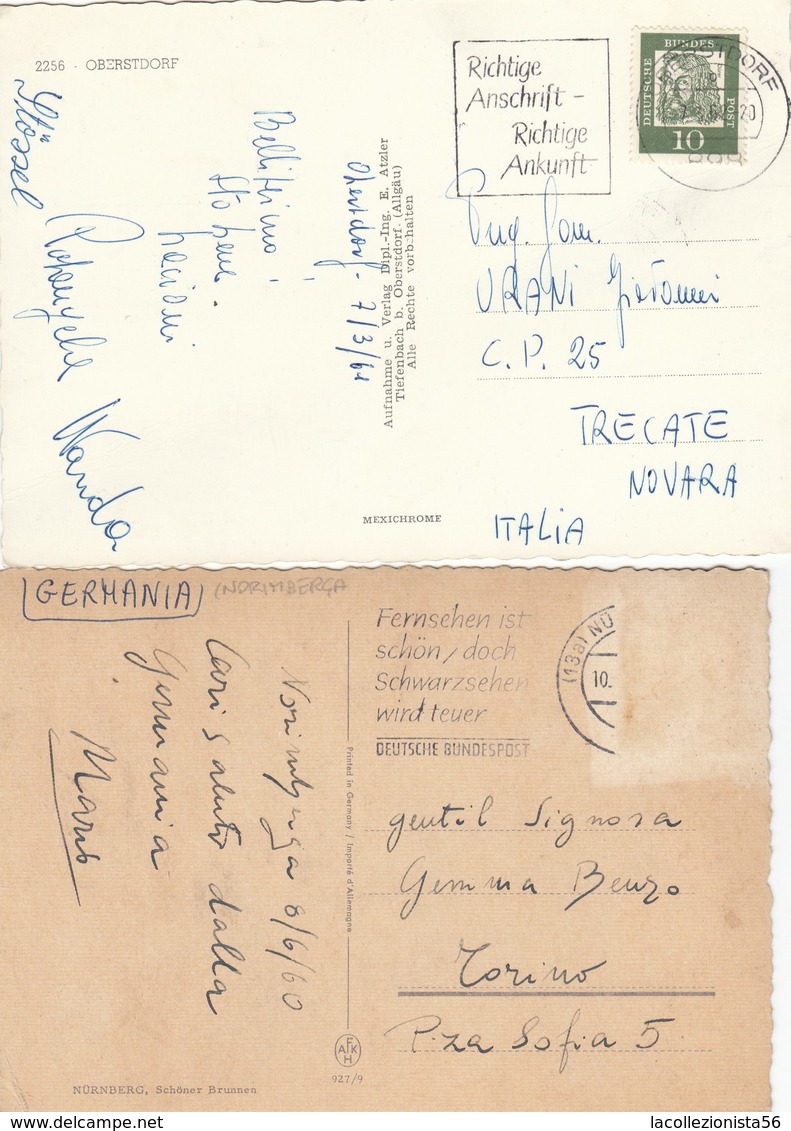 2256 - OBERSTDORF
Richtige
Anschrift -
Richtige
Ankunft
OBERSTDORF
DEUTSCHE BUNDES-
POST
10
Oberstdorf - 7/3/61
Aufnahme u. Verlag Dipl.-Ing. E. Atzler
Tiefenbach b. Oberstdorf. (Allgäu)
Alle Rechte vorbehalten
Wanda
URANI
C.P. 25
TRECATE
NOVARA
ITALIA
MEXICHROME
GERMANIA
(NORIMBERGA
Fernsehen ist
schön, doch
Schwarzsehen
wird teuer
DEUTSCHE BUNDESPOST
(13a) NÜ
10.
Norimberga 8/6/60
Cari saluti dalla
Germania
Printed in Germany / Importé d'Allemagne
gentil Signora
Gemma Benzo
Torino
P.za Sofia 5
AFKH
927/9
NÜRNBERG, Schöner Brunnen
lacollezionista56